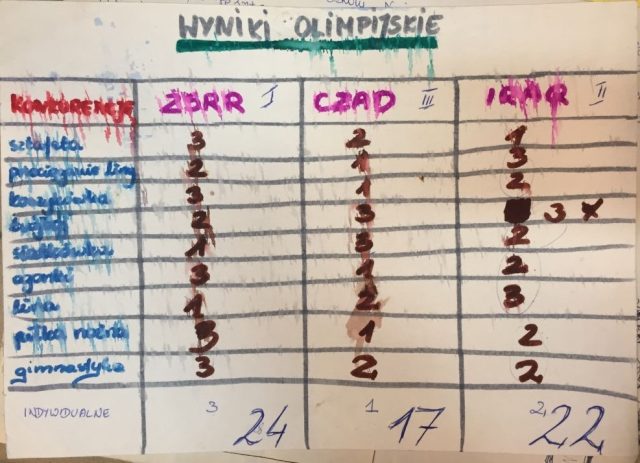 WYNIKI OLIMPIJSKIE
KONKURENCJE ZSRR I CZAD III IRAK II
sztafeta 3 2 1
przeciąganie liny 2 1 3
koszykówka 3 1 2
2 3 3 x
siatkówka 1 3 2
3 1 2
1 2 3
piłka nożna 3 1 2
gimnastyka 3 2 2
INDYWIDUALNE 3 24 1 17 2 22